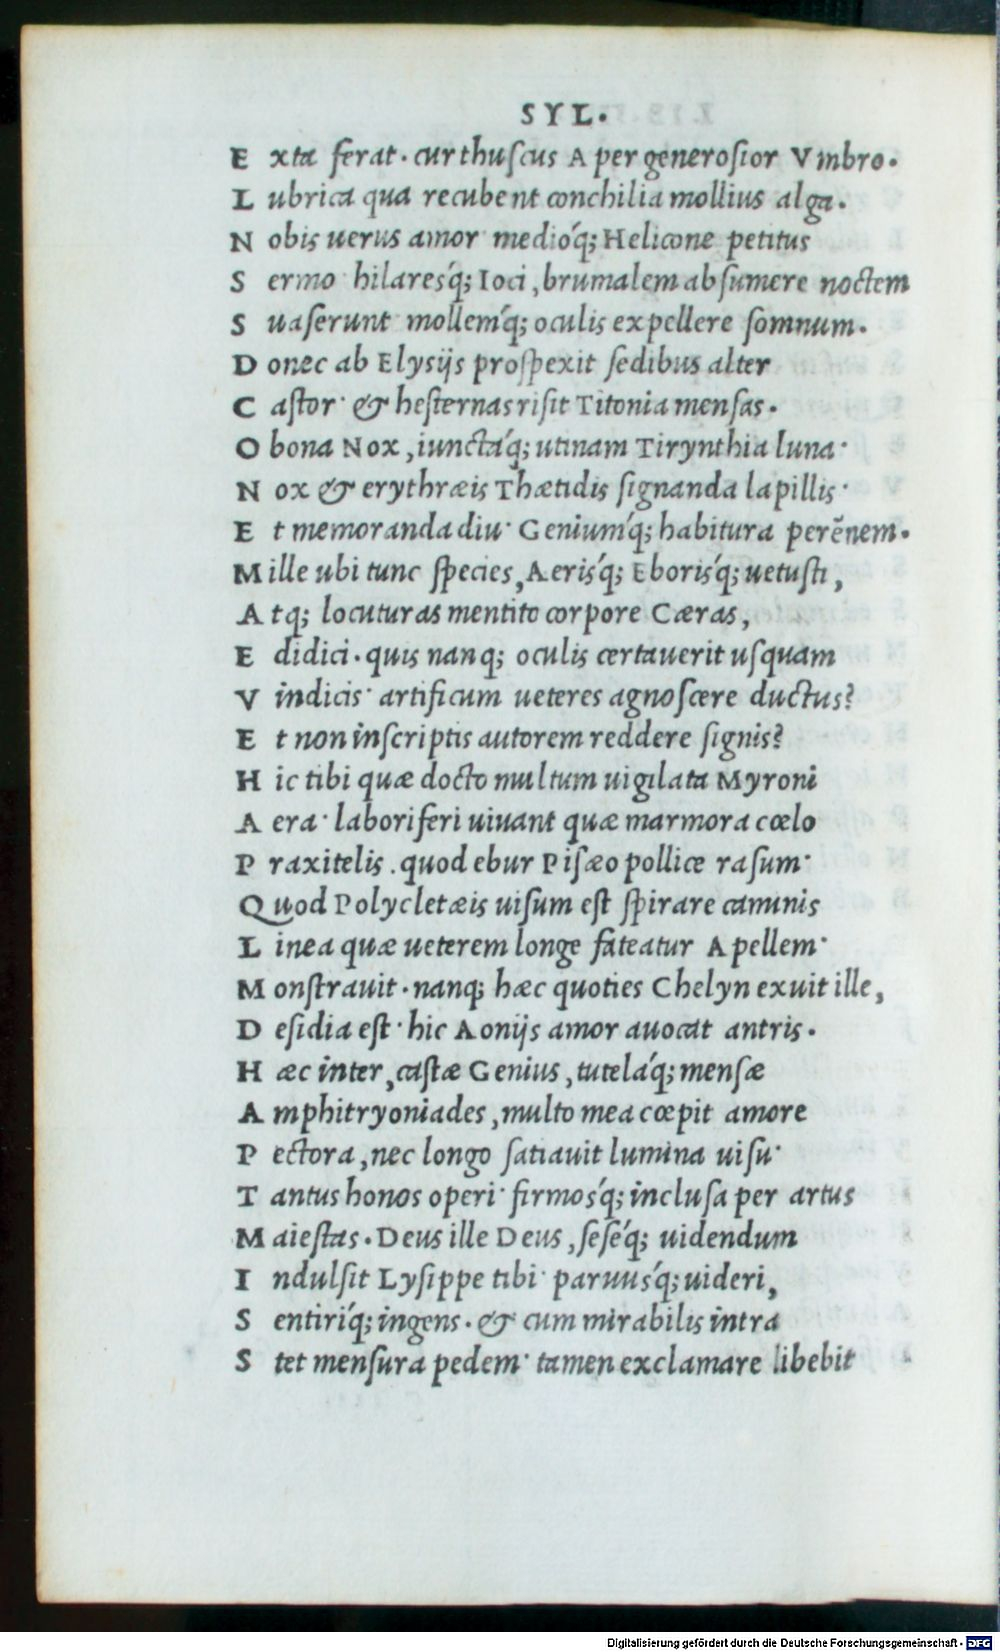 SYL.
Exta ferat. cur thuſcus Aper generoſior Vmbro.
Lubrica qua recubent conchilia mollius alga.
Nobis uerus amor medioq́; Helicone petitus
Sermo hilareſq́; Ioci, brumalem abſumere noctem
Suaſerunt mollemq́; oculis expellere ſomnum.
Donec ab Elysijs proſpexit ſedibus alter
Caſtor· & heſternas riſit Titonia menſas.
O bona Nox, iunctaq́; utinam Tirynthia luna·
Nox & erythræis Thætidis ſignanda lapillis·
Et memoranda diu· Geniumq́; habitura perẽnem.
Mille ubi tunc ſpecies, Aeriſq́; Eboriſq́; uetuſti,
Atq; locuturas mentito corpore Cæras,
Edidici. quis nanq; oculis certauerit uſquam
Vindicis· artificum ueteres agnoſcere ductus?
Et non inſcriptis autorem reddere ſignis?
Hic tibi quæ docto multum uigilata Myroni
Aera· laboriferi uiuant quæ marmora cœlo
Praxitelis. quod ebur Piſæo pollice raſum·
Quod Polycletæis uiſum eſt ſpirare caminis
Linea quæ ueterem longe fateatur Apellem·
Monſtrauit. nanq; hæc quoties Chelyn exuit ille,
Deſidia eſt· hic Aonijs amor auocat antris.
Hæc inter, caſtæ Genius, tutelaq́; menſæ
Amphitryoniades, multo mea cœpit amore
Pectora, nec longo ſatiauit lumina uiſu·
Tantus honos operi· firmoſq́; incluſa per artus
Maieſtas. Deus ille Deus, ſeſeq́; uidendum
Indulſit Lyſippe tibi· paruuſq́; uideri,
Sentiriq́; ingens. & cum mirabilis intra
Stet menſura pedem· tamen exclamare libebit
Digitalisierung gefördert durch die Deutsche Forschungsgemeinschaft - DFG